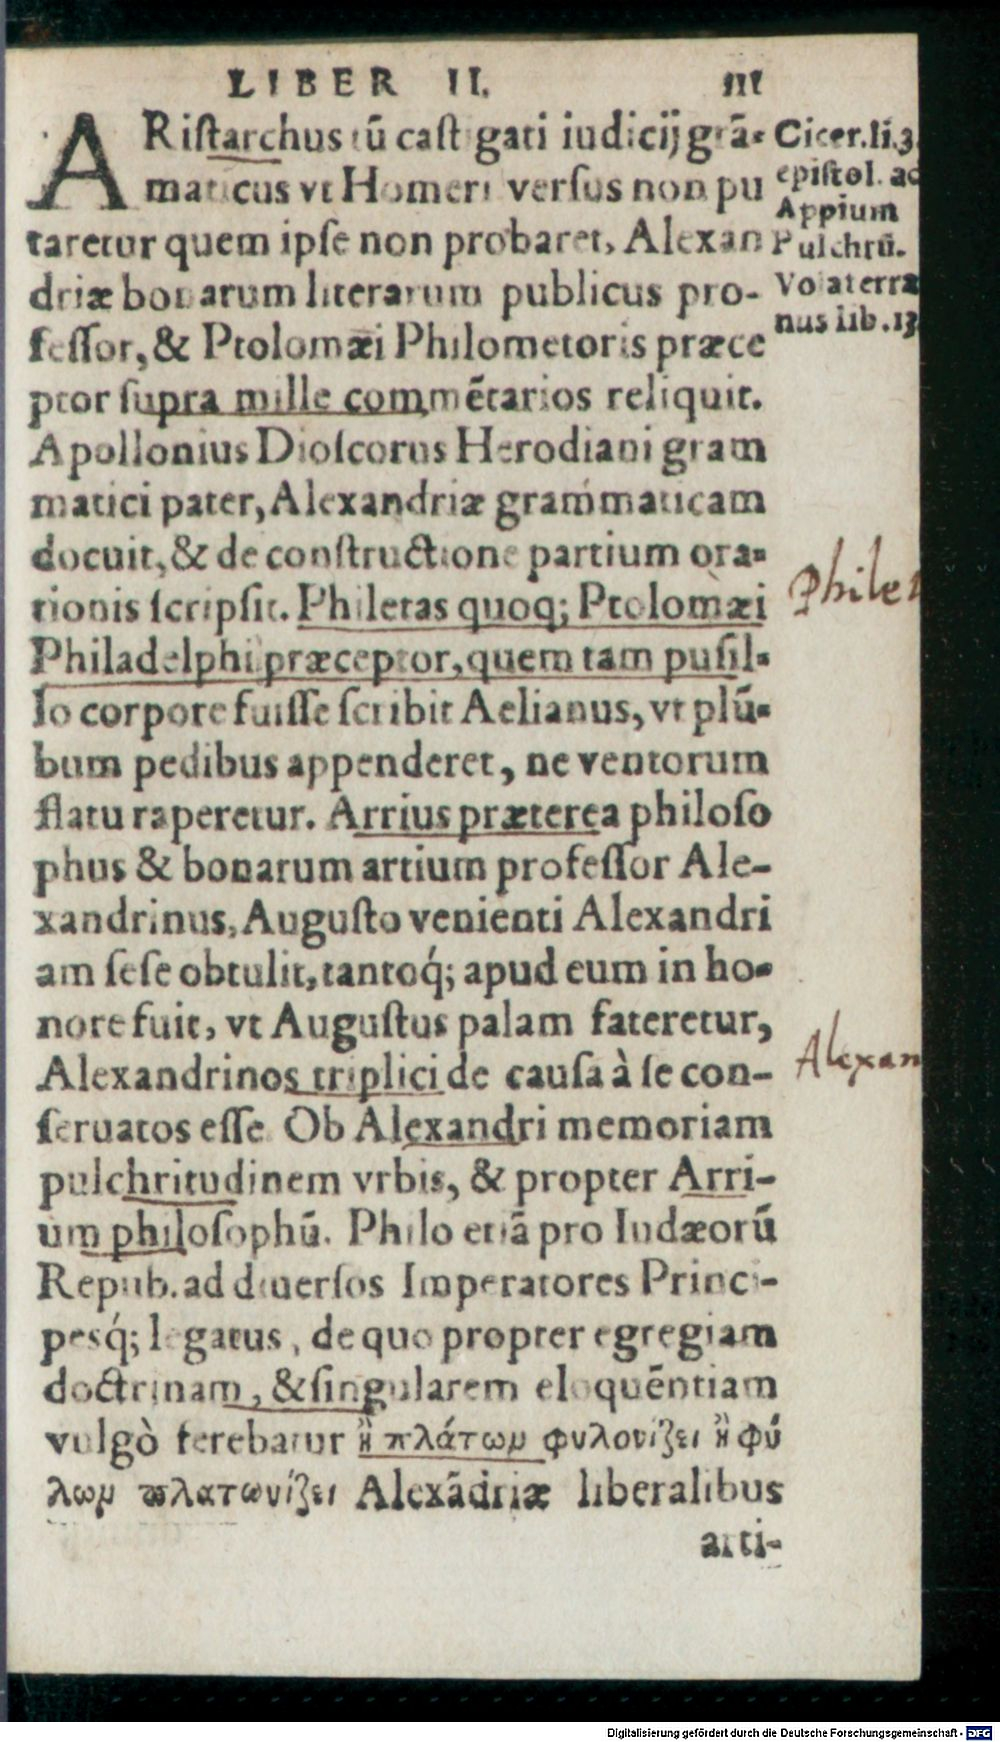 LIBER II. 111
ARistarchus tū castigati iudicij grā-
maticus vt Homeri versus non pu
taretur quem ipse non probaret, Alexan
driæ bonarum literarum publicus pro-
fessor, & Ptolomæi Philometoris præce
ptor supra mille commētarios reliquit.
Apollonius Dioscorus Herodiani gram
matici pater, Alexandriæ grammaticam
docuit, & de constructione partium ora-
tionis scripsit. Philetas quoq; Ptolomæi
Philadelphi præceptor, quem tam pusil-
lo corpore fuisse scribit Aelianus, vt plū-
bum pedibus appenderet, ne ventorum
flatu raperetur. Arrius præterea philoso
phus & bonarum artium professor Ale-
xandrinus, Augusto venienti Alexandri
am sese obtulit, tantoq́; apud eum in ho-
nore fuit, vt Augustus palam fateretur,
Alexandrinos triplici de causa à se con-
seruatos esse. Ob Alexandri memoriam
pulchritudinem vrbis, & propter Arri-
um philosophū. Philo etiā pro Iudæorū
Repub. ad diuersos Imperatores Princi-
pesq́; legatus, de quo propter egregiam
doctrinam, & singularem eloquētiam
vulgò ferebatur ἢ πλάτων φυλονίζει ἢ φύ
λων πλατωνίζει Alexādriæ liberalibus
arti-
Cicer. li. 3.
epistol. ad
Appium
Pulchrū.
Volaterra
nus lib. 13
Philet
Alexan
Digitalisierung gefördert durch die Deutsche Forschungsgemeinschaft - DFG